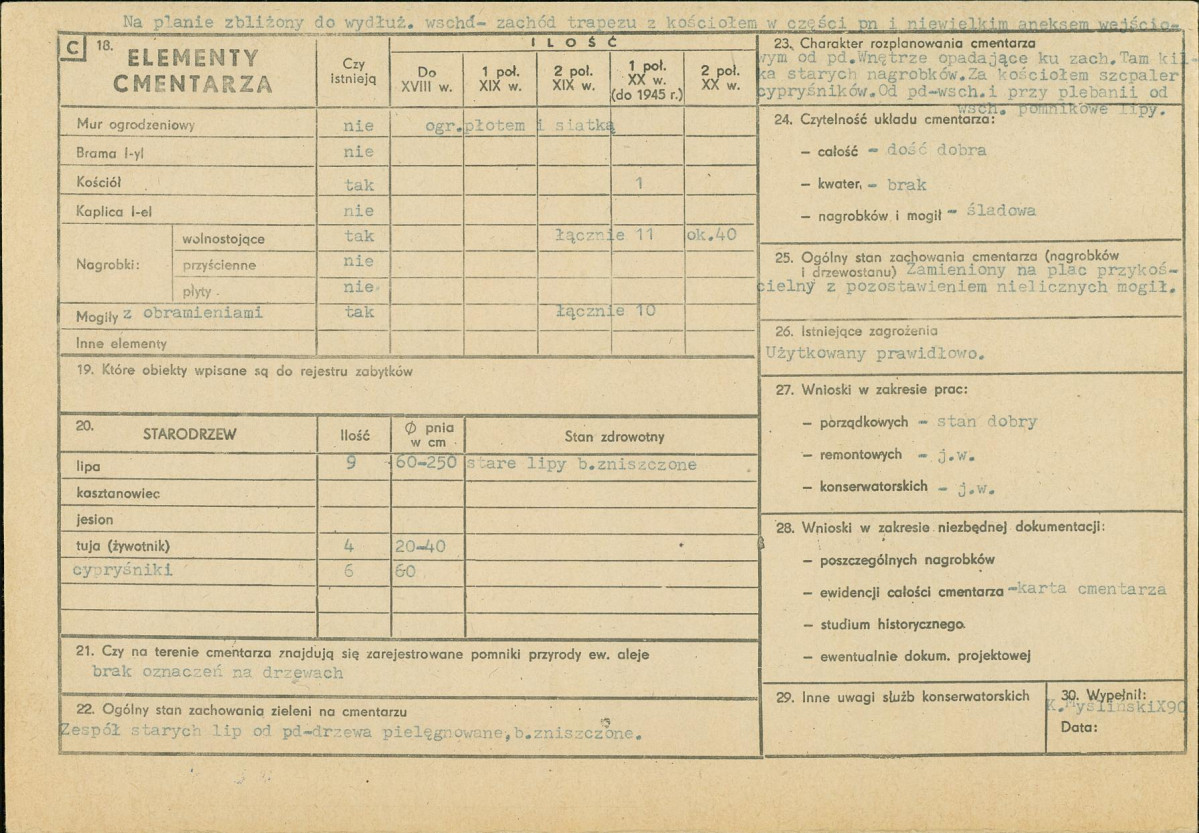 Na planie zbliżony do wydłuż. wschd- zachód trapezu z kościołem w części pn i niewielkim aneksem wejścio-
C 18. ELEMENTY CMENTARZA
Czy istnieją
ILOŚĆ
Do XVIII w.
1 poł. XIX w.
2 poł. XIX w.
1 poł. XX w. (do 1945 r.)
2 poł. XX w.
Mur ogrodzeniowy nie ogr.płotem i siatką
Brama I-yl nie
Kościół tak 1
Kaplica I-el nie
Nagrobki:
wolnostojące tak łącznie 11 ok.40
przyścienne nie
płyty nie
Mogiły z obramieniami tak łącznie 10
Inne elementy
19. Które obiekty wpisane są do rejestru zabytków
20. STARODRZEW Ilość Ø pnia w cm Stan zdrowotny
lipa 9 60-250 stare lipy b.zniszczone
kasztanowiec
jesion
tuja (żywotnik) 4 20-40
cypryśniki 6 60
21. Czy na terenie cmentarza znajdują się zarejestrowane pomniki przyrody ew. aleje
brak oznaczeń na drzewach
22. Ogólny stan zachowania zieleni na cmentarzu
Zespół starych lip od pd-drzewa pielęgnowane,b.zniszczone.
23. Charakter rozplanowania cmentarza
wym od pd.Wnętrze opadające ku zach.Tam kil-
ka starych nagrobków.Za kościołem szcpaler
cypryśników.Od pd-wsch.i przy plebanii od
wsch. pomnikowe lipy.
24. Czytelność układu cmentarza:
– całość - dość dobra
– kwater, - brak
– nagrobków i mogił - śladowa
25. Ogólny stan zachowania cmentarza (nagrobków
i drzewostanu) Zamieniony na plac przykoś-
cielny z pozostawieniem nielicznych mogił.
26. Istniejące zagrożenia
Użytkowany prawidłowo.
27. Wnioski w zakresie prac:
– porządkowych - stan dobry
– remontowych - j.w.
– konserwatorskich - j.w.
28. Wnioski w zakresie niezbędnej dokumentacji:
– poszczególnych nagrobków
– ewidencji całości cmentarza -karta cmentarza
– studium historycznego
– ewentualnie dokum. projektowej
29. Inne uwagi służb konserwatorskich
30. Wypełnił:
K.MyślińskiX90
Data: